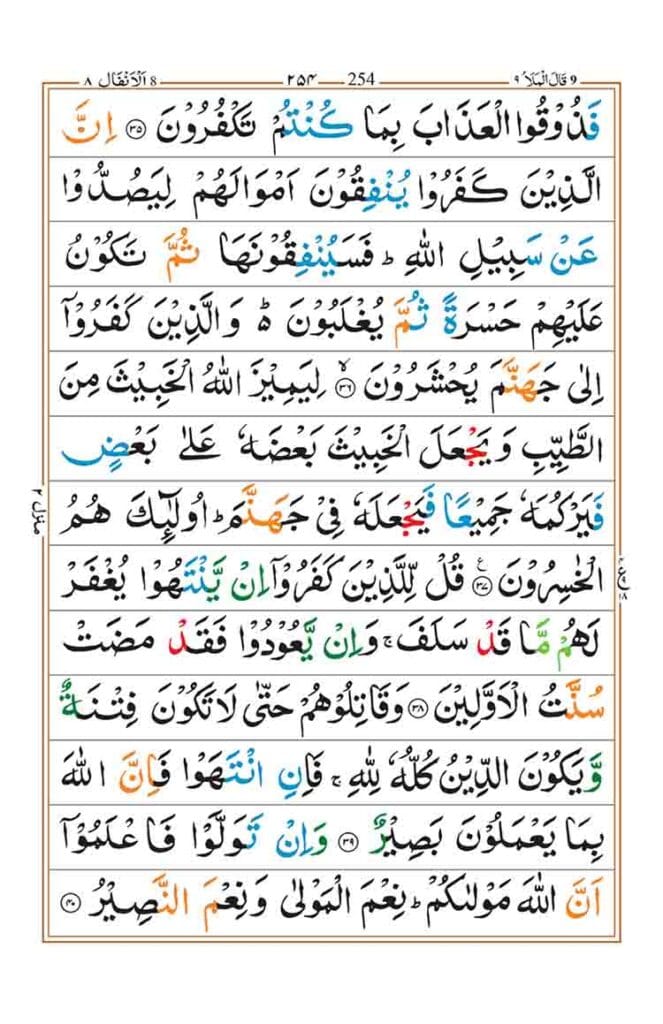 ٩ قَالَ الْمَلَاُ 9 254 ٢٥٤ 8 اَلْاَنْفَال ٨
فَذُوْقُوا الْعَذَابَ بِمَا كُنْتُمْ تَكْفُرُوْنَ ۝٣٥ اِنَّ
الَّذِيْنَ كَفَرُوْا يُنْفِقُوْنَ اَمْوَالَهُمْ لِيَصُدُّوْا
عَنْ سَبِيْلِ اللّٰهِ ؕ فَسَيُنْفِقُوْنَهَا ثُمَّ تَكُوْنُ
عَلَيْهِمْ حَسْرَةً ثُمَّ يُغْلَبُوْنَ ؕ۬ وَالَّذِيْنَ كَفَرُوْۤا
اِلٰى جَهَنَّمَ يُحْشَرُوْنَ ۝٣٦ۙ لِيَمِيْزَ اللّٰهُ الْخَبِيْثَ مِنَ
الطَّيِّبِ وَيَجْعَلَ الْخَبِيْثَ بَعْضَهٗ عَلٰى بَعْضٍ
فَيَرْكُمَهٗ جَمِيْعًا فَيَجْعَلَهٗ فِيْ جَهَنَّمَ ؕ اُولٰٓئِكَ هُمُ
الْخٰسِرُوْنَ ۝٣٧ۧ قُلْ لِّلَّذِيْنَ كَفَرُوْۤا اِنْ يَّنْتَهُوْا يُغْفَرْ
لَهُمْ مَّا قَدْ سَلَفَ ۚ وَاِنْ يَّعُوْدُوْا فَقَدْ مَضَتْ
سُنَّتُ الْاَوَّلِيْنَ ۝٣٨ وَقَاتِلُوْهُمْ حَتّٰى لَا تَكُوْنَ فِتْنَةٌ
وَّيَكُوْنَ الدِّيْنُ كُلُّهٗ لِلّٰهِ ۚ فَاِنِ انْتَهَوْا فَاِنَّ اللّٰهَ
بِمَا يَعْمَلُوْنَ بَصِيْرٌ ۝٣٩ وَاِنْ تَوَلَّوْا فَاعْلَمُوْۤا
اَنَّ اللّٰهَ مَوْلٰىكُمْ ؕ نِعْمَ الْمَوْلٰى وَنِعْمَ النَّصِيْرُ ۝٤٠
منزل ٢